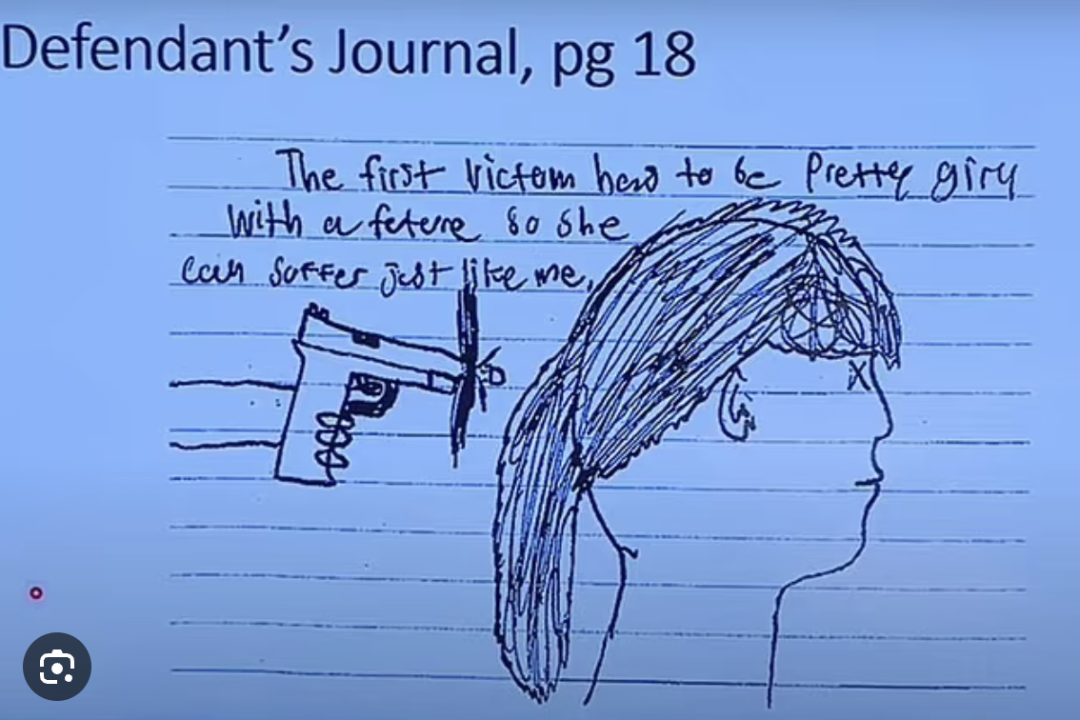 Defendant's Journal, pg 18
The first Victom has to be Pretty girl
With a feture so she
can suffer just like me.